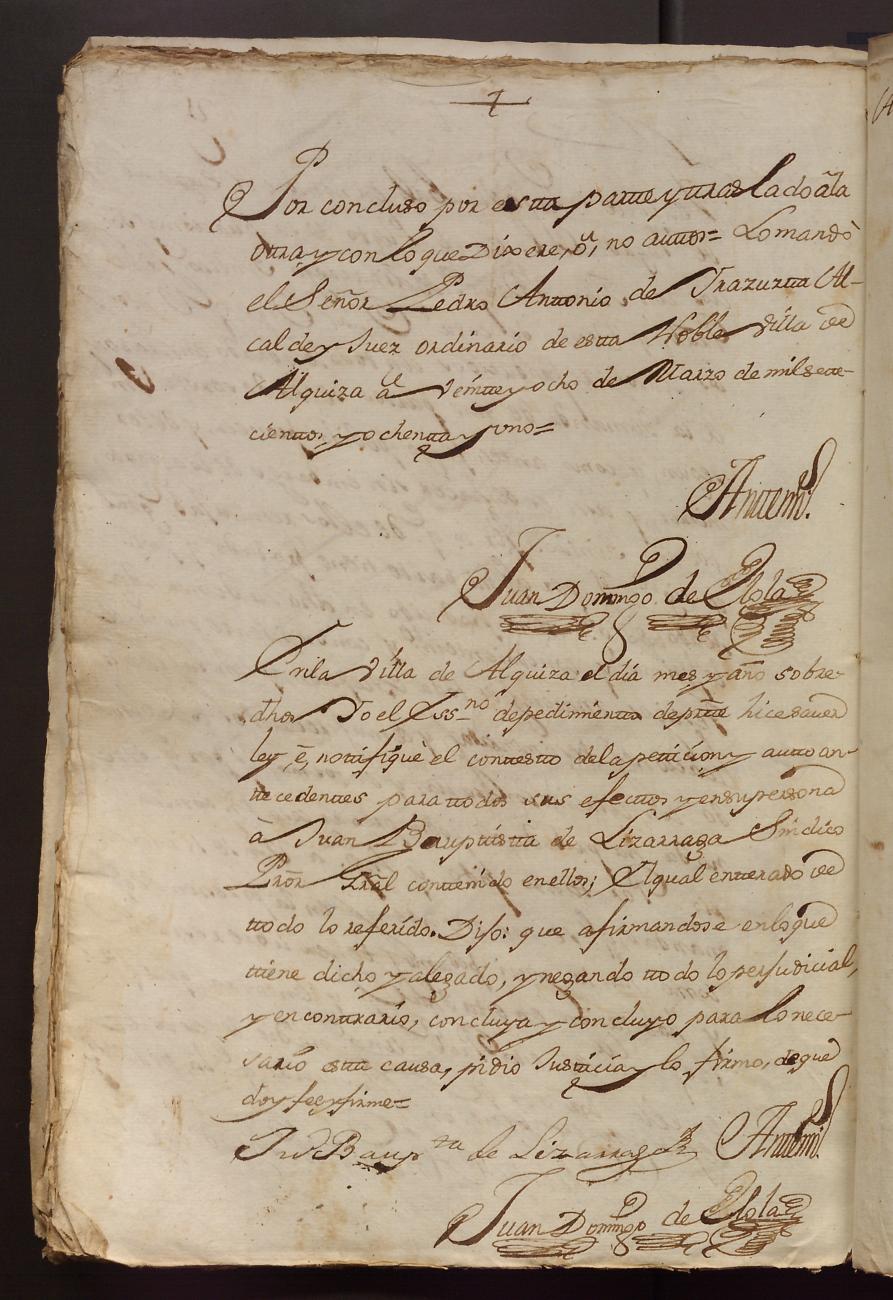 +
Por concluso por esta parte y traslado â la
otra, y con lo que Dixere, ô, no auttos= Lo mandò
el Señor Pedro Antonio de Yrazuzta Al-
calde y Juez ordinario de esta Noble Villa de
Alquiza â Veinte y ocho de Marzo de mil sete-
cientos, y ochenta y uno=
Antemi.
Juan Domingo de Elola
En la Villa de Alquiza el dia mes y año sobre-
dhos Yo el Essno de pedimiento de ptte hice saver
ley, ê, notifiquè el contesto de la peticion y autto an-
tecedentes para todos sus efectos y en su persona
à Juan Bauptista de Lizarraga Sindico
Prôr Gral contenido en ellos; El qual enterado de
todo lo referido. Dijo: que afirmandose en lo que
tiene dicho y alegado, y negando todo lo perjudicial,
y en contrario, concluya y concluyo para lo nece-
sario esta causa, pidio Justicia y lo firmo, de que
doy fee y firme=
Jn Baupta de Lizarraga Antemi.
Juan Domingo de Elola